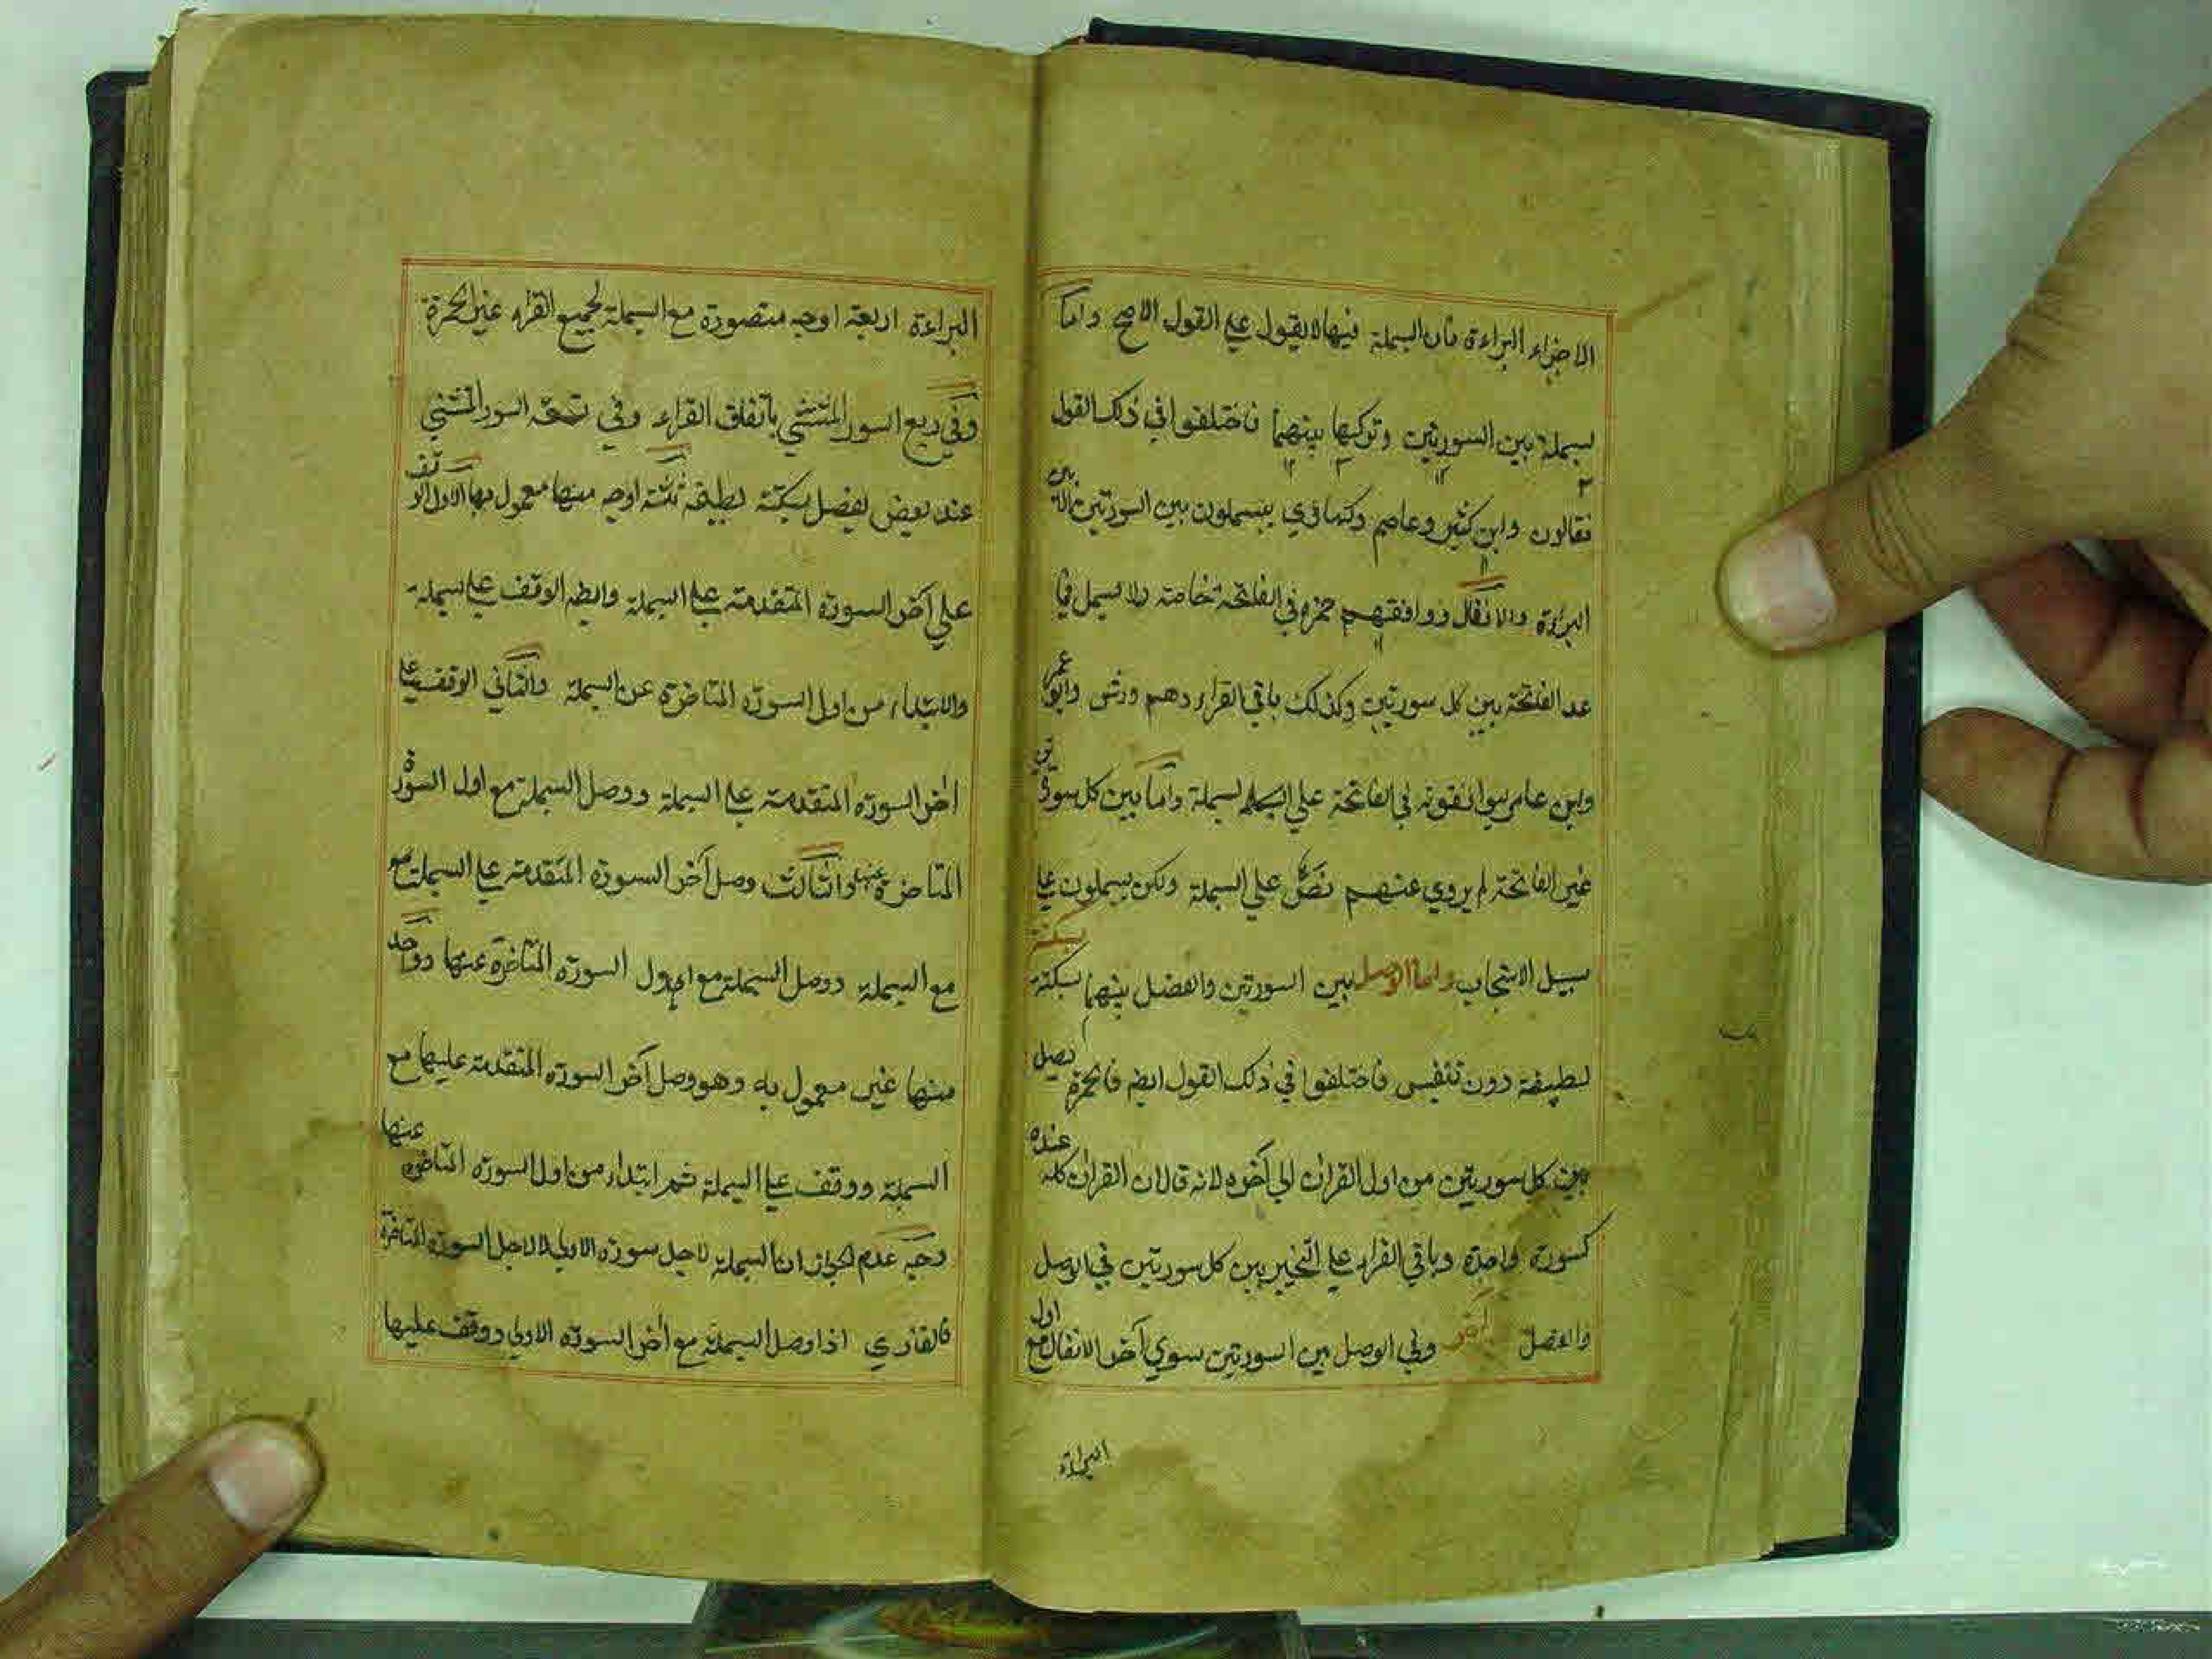 الاجزاء البراءة فان البسملة فيها لا يقول علي القول الاصح واما
لبسملة بين السورتين وتركها بينهما فاختلفوا في ذلك القول
فقالون وابن كثير وعاصم وكسائي يبسملون بين السورتين الا بين
البراءة والانفال ووافقهم حمزه في الفاتحة خاصة ولا يسمل فيما
عد الفتحة بين كل سورتين وكذلك باقي القراء وهم ورش وابو عمر
وابن عامر يوافقونه في الفاتحة علي البسملة واما بين كل سورتين
غير الفاتحة لم يروي عنهم نص علي البسملة ولكن يبسملون علي
سبيل الاستحباب واما الوصل بين السورتين والفصل بينهما بسكتة
لطيفة دون تنفس فاختلفوا في ذلك القول ايضا فالحمزة يصل
بين كل سورتين من اول القران الي آخره لانه قال ان القران كله عنده
كسورة واحدة وباقي القراء علي التخيير بين كل سورتين في الوصل
والفصل وفي الوصل بين السورتين سوي آخر الانفال مع اول
البراءة
البراءة اربعة اوجه متصورة مع البسملة لجميع القراء غير الحمزة
وفي ربع السور المستثني باتفاق القراء وفي السور المستثني
عند بعض بفصل بسكتة لطيفة ثلثة اوجه منها معمول بها الاول الوقف
علي آخر السورة المتقدمة علي البسملة وايضا الوقف علي بسملة
والابتداء من اول السورة المتاخرة عن البسملة والثاني الوقف علي
اخر السورة المتقدمة علي البسملة ووصل البسملة مع اول السورة
المتاخرة عنها والثالث وصل آخر السورة المتقدمة علي البسملة مع
مع البسملة ووصل البسملة مع اول السورة المتاخرة عنها ووجه
منها غير معمول به وهو وصل آخر السورة المتقدمة عليها مع
البسملة ووقف علي البسملة ثم ابتداء من اول السورة المتاخرة عنها
وجه عدم الجواز ان البسملة لاجل سورة الاولي لا لاجل السورة المتاخرة
فالقاري اذا وصل البسملة مع اخر السورة الاولي ووقف عليها